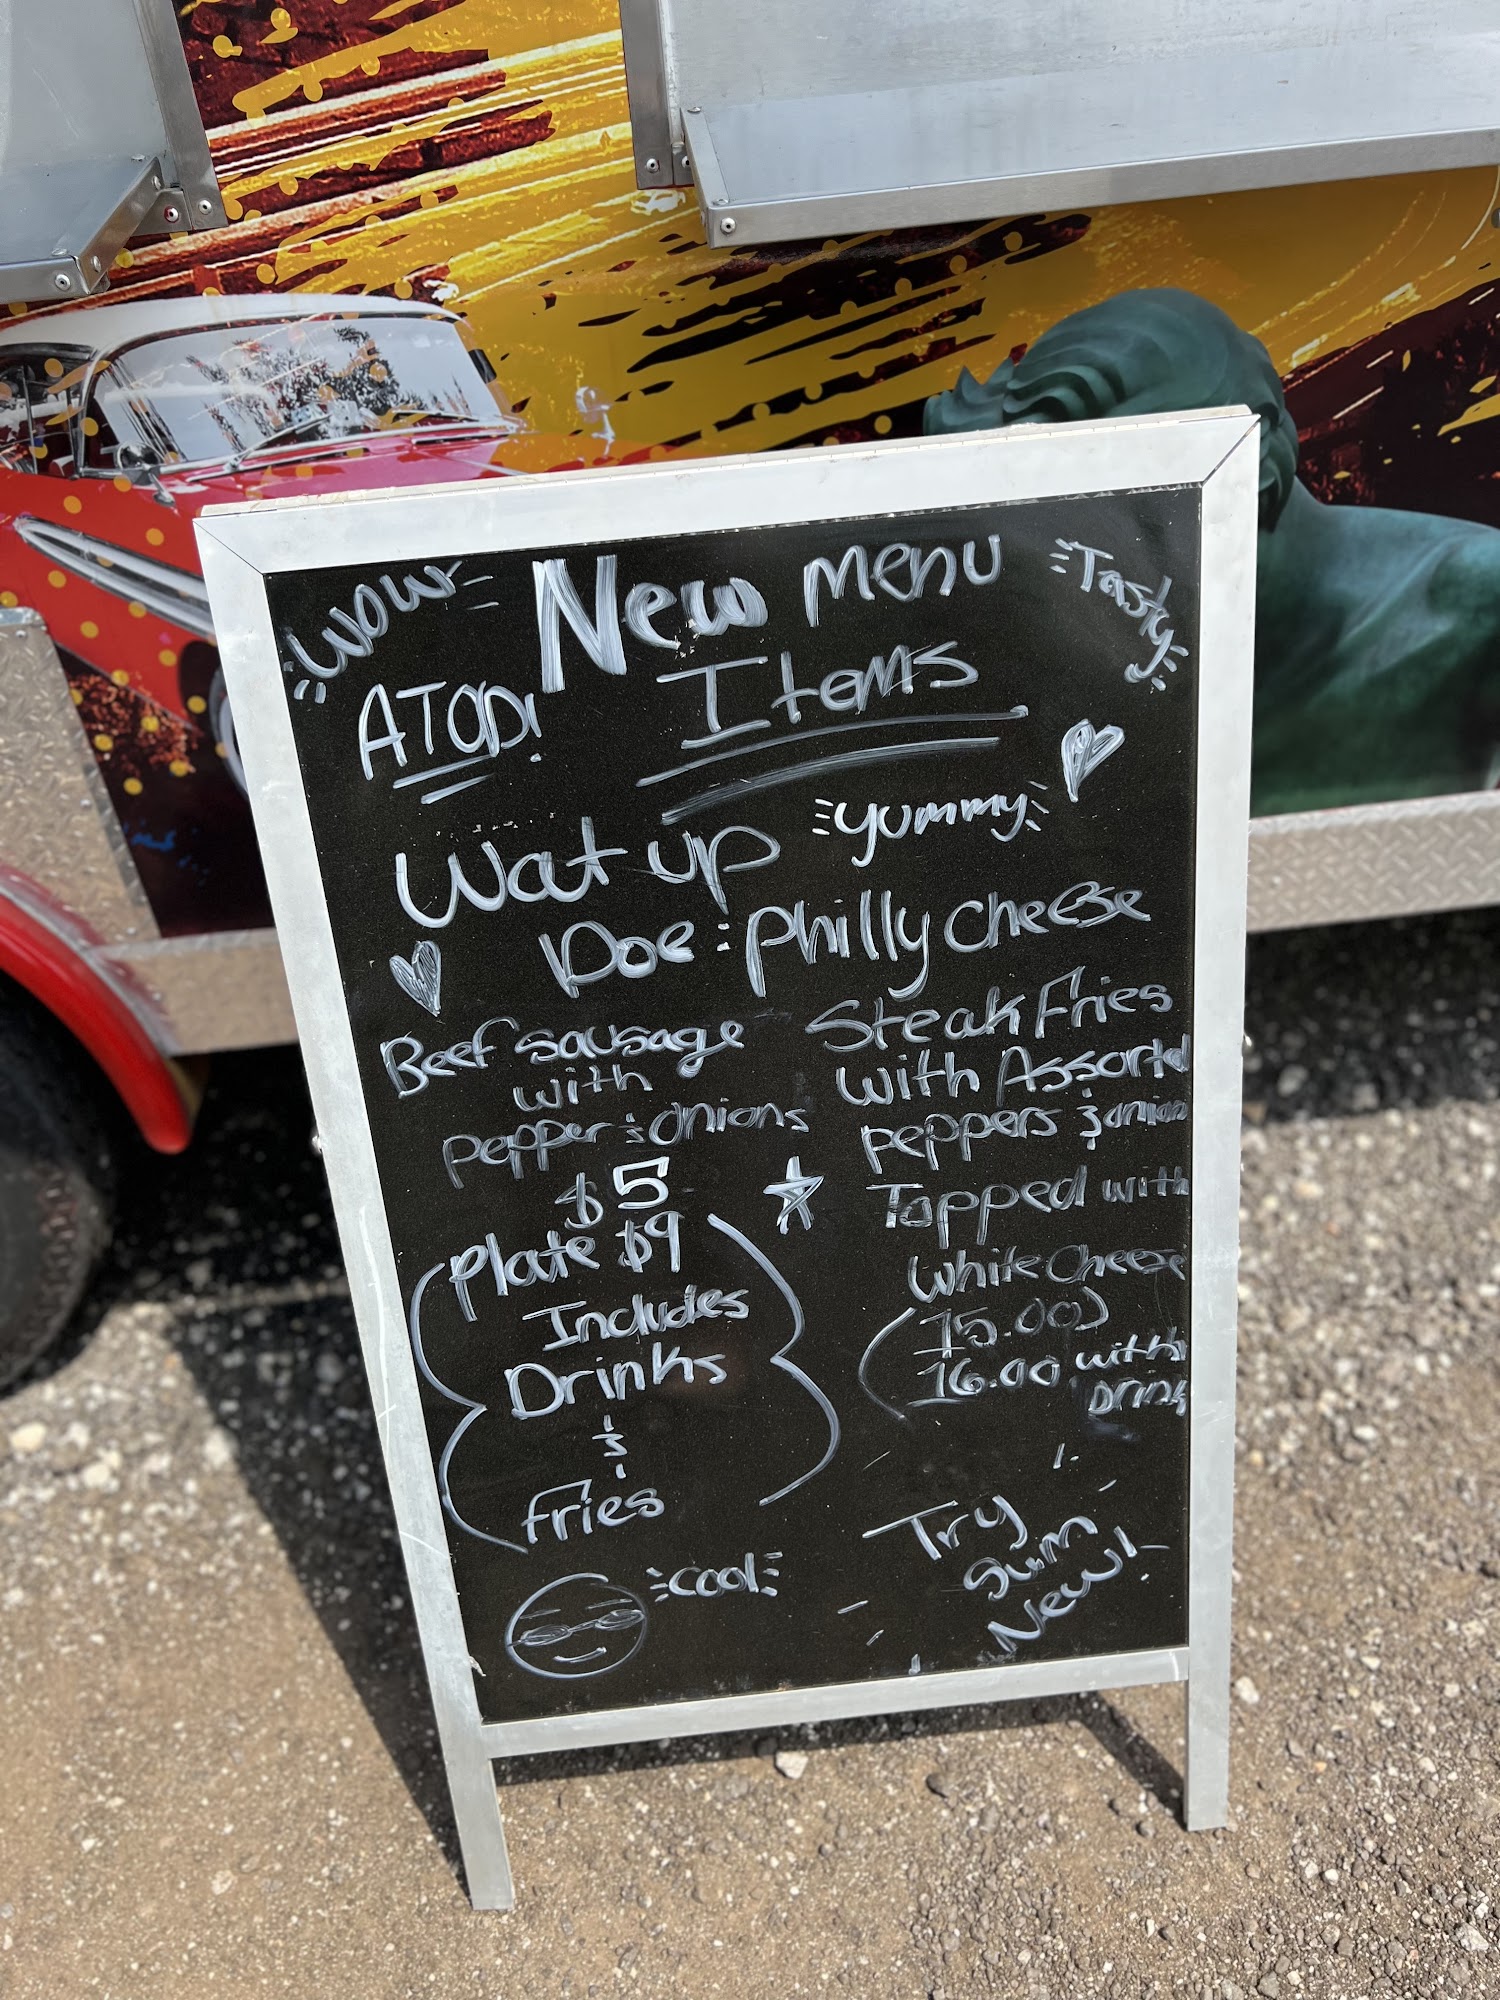 WOW
New menu
Tasty
ATOD!
Items
Wat up
yummy
Doe: Philly Cheese
Steak Fries
with Assorted
peppers & onion
Topped with
White Cheese
15.00
16.00 with
Drink
Beef sausage
with
pepper & onions
$5
Plate $9
Includes
Drinks
&
fries
cool
Try
sum
New!